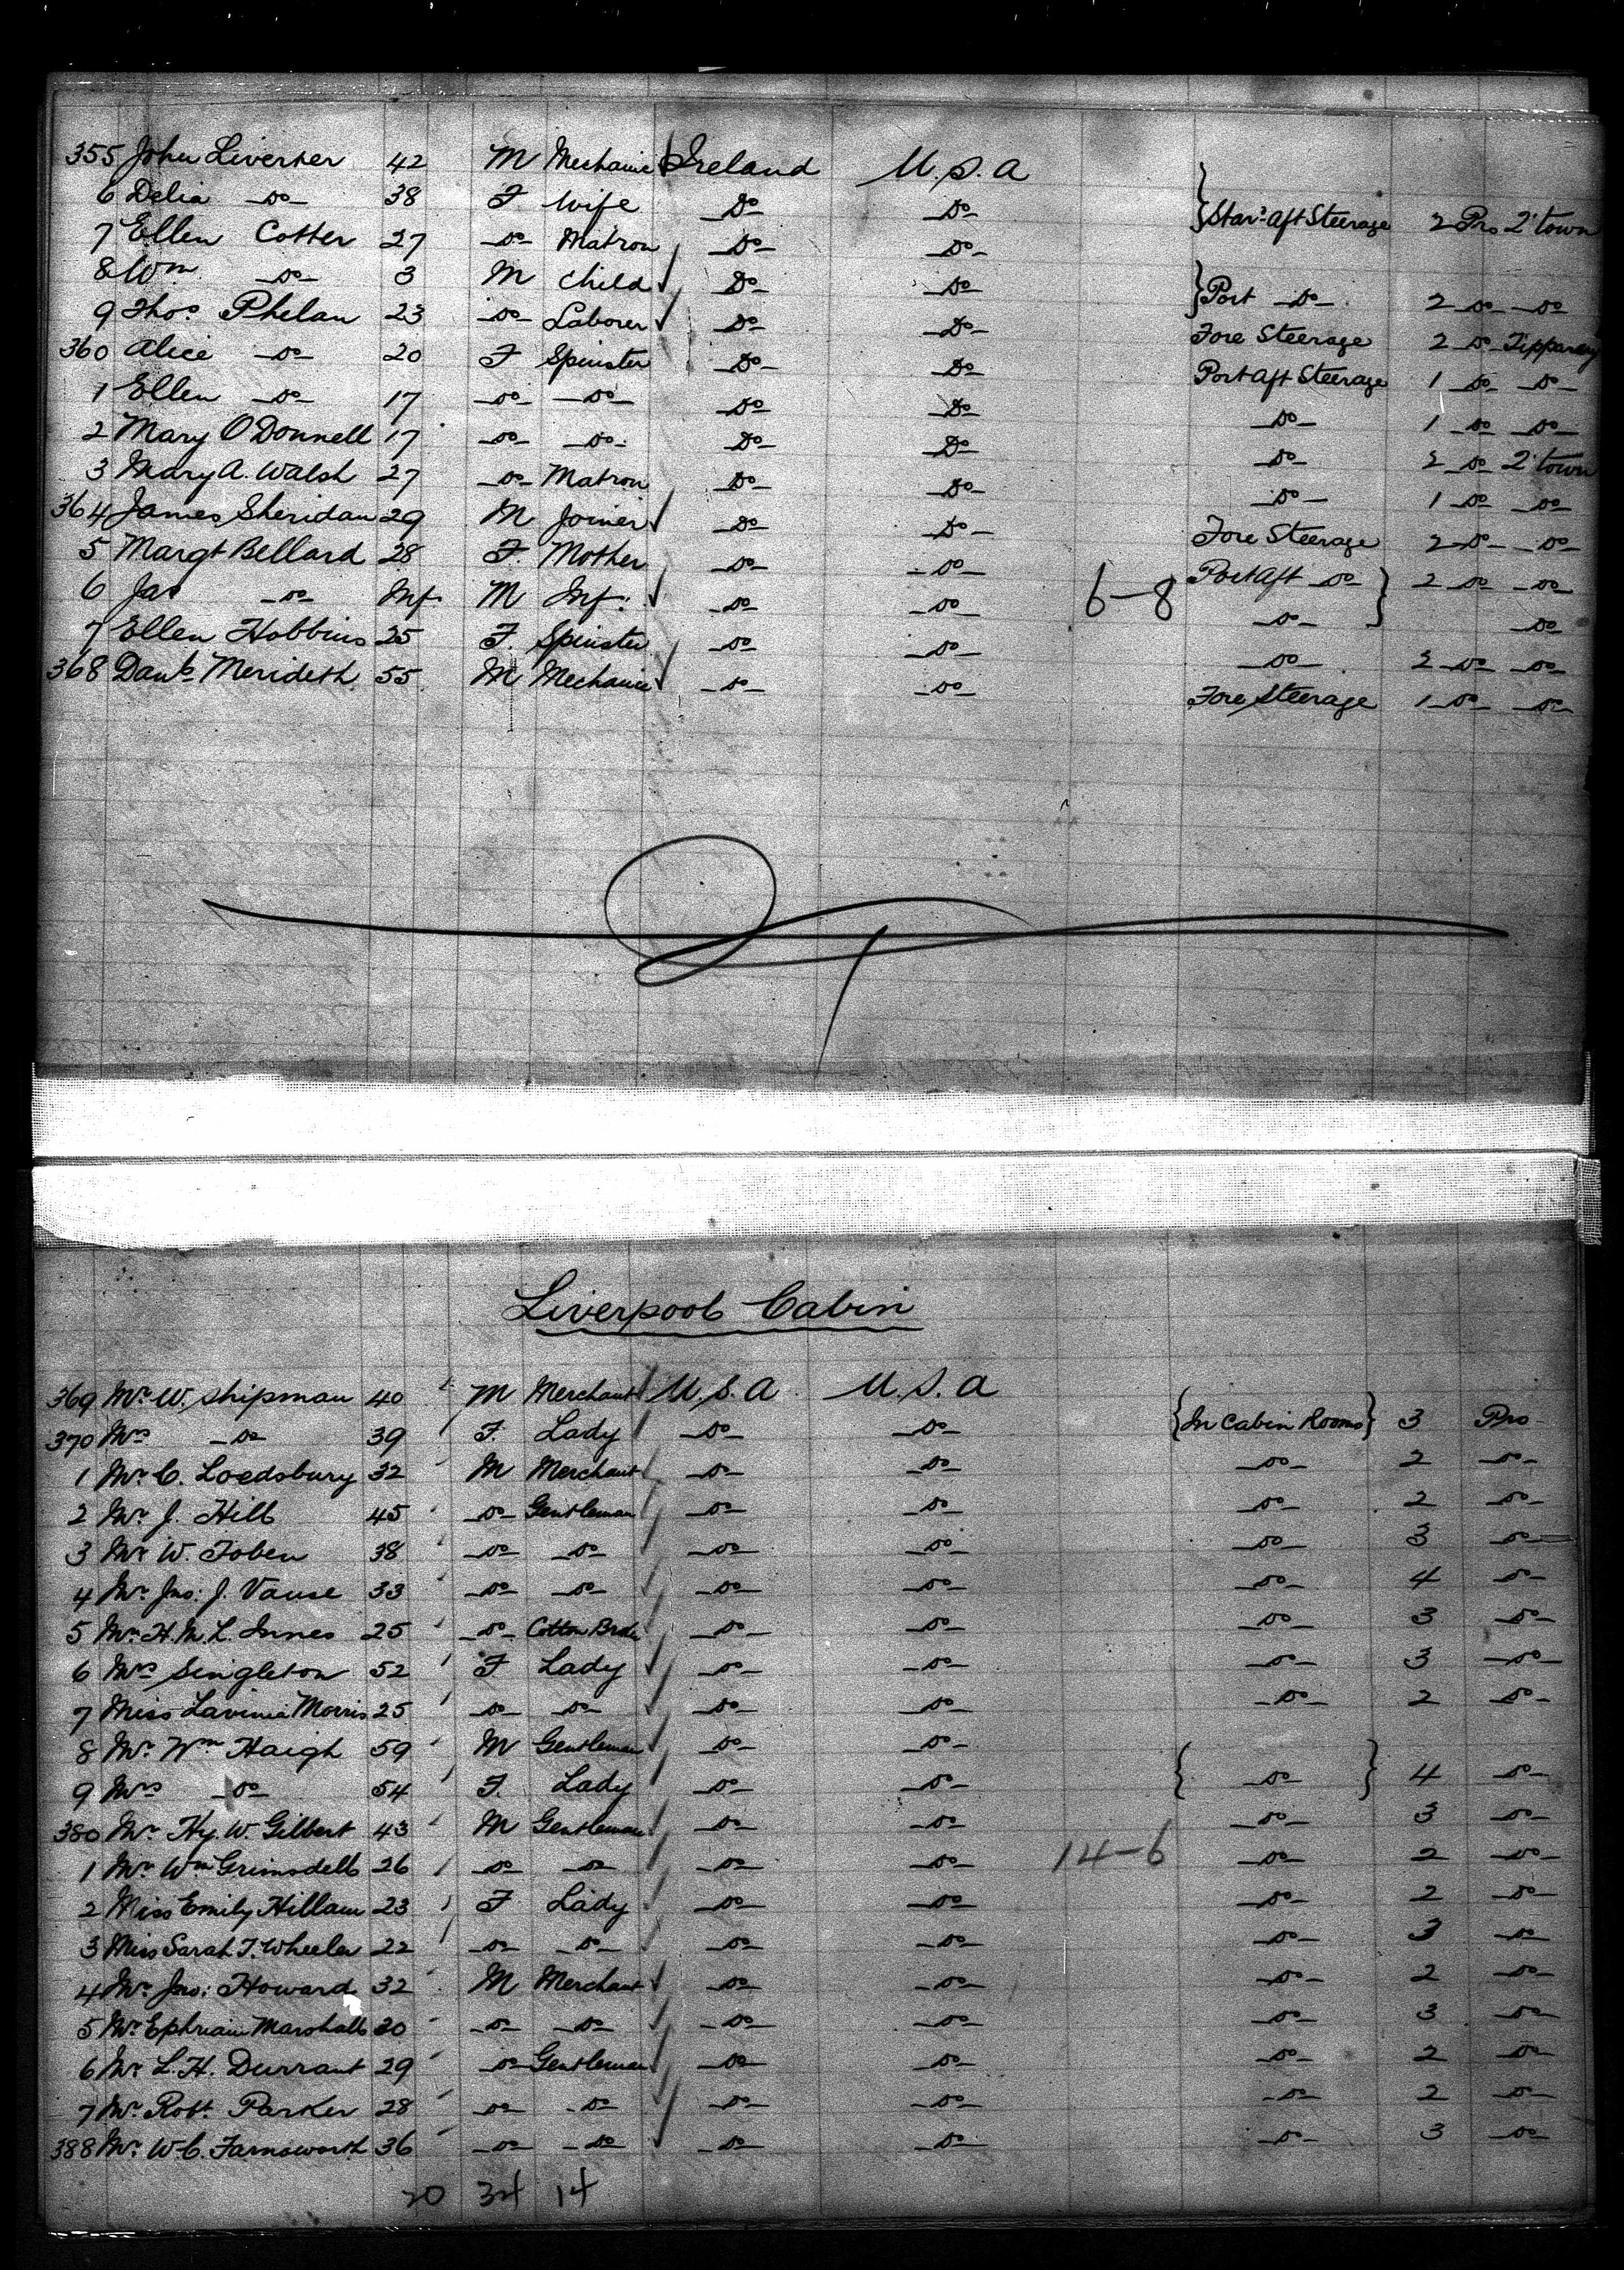 355 John Liverser 42 M Mechanic Ireland U.S.A
6 Delia -do- 38 F Wife -Do- -Do- } Star.d Aft Steerage 2 Pro Q'town
7 Ellen Cotter 27 -do- Matron -Do- -Do-
8 Wm -do- 3 M Child -Do- -Do- } Port -Do- 2 -do- -do-
9 Thos Phelan 23 -do- Laborer -Do- -Do- Fore Steerage 2 -do- Tipparey
360 Alice -do- 20 F Spinster -Do- -Do- Port Aft Steerage 1 -do- -do-
1 Ellen -do- 17 -do- -do- -Do- -Do- -do- 1 -do- -do-
2 Mary O'Donnell 17 -do- -do- -Do- -Do- -do- 2 -do- Q'town
3 Mary A. Walsh 27 -do- Matron -Do- -Do- -do- 1 -do- -do-
364 James Sheridan 29 M Joiner -Do- -Do- Fore Steerage 2 -do- -do-
5 Margt Bellard 28 F. Mother -do- -do- Port Aft -do- } 2 -do- -do-
6 Jas -do- Inf. M Inf. -do- -do- 6-8 -do- -do-
7 Ellen Hobbins 25 F. Spinster -do- -do- -do- 2 -do- -do-
368 Danl. Merideth 55 M Mechanic -do- -do- Fore Steerage 1 -do- -do-
Liverpool Cabin
369 Mr. W. Shipman 40 M Merchant U.S.A. U.S.A
370 Mrs -do- 39 F. Lady -do- -do- { In Cabin Rooms } 3 Pro
1 Mr. C. Loedsbury 32 M Merchant -do- -do- -do- 2 -do-
2 Mr. J. Hill 45 -do- Gentleman -do- -do- -do- 2 -do-
3 Mr W. Toben 38 -do- -do- -do- -do- -do- 3 -do-
4 Mr. Jno. J. Vause 33 -do- -do- -do- -do- -do- 4 -do-
5 Mr. H. M. L. Innes 25 -do- Cotton Brok -do- -do- -do- 3 -do-
6 Mrs Singleton 52 F Lady -do- -do- -do- 3 -do-
7 Miss Lavinia Morris 25 -do- -do- -do- -do- -do- 2 -do-
8 Mr. Wm Haigh 59 M Gentleman -do- -do-
9 Mrs -do- 54 F. Lady -do- -do- { -do- } 4 -do-
380 Mr Hy. W. Gilbert 43 M Gentleman -do- -do- -do- 3 -do-
1 Mr Wm Grimsdell 26 -do- -do- -do- -do- 14-6 -do- 2 -do-
2 Miss Emily Hillam 23 F Lady -do- -do- -do- 2 -do-
3 Miss Sarah T. Wheeler 22 -do- -do- -do- -do- -do- 3 -do-
4 Mr Jno: Howard 32 M Merchant -do- -do- -do- 2 -do-
5 Mr Ephriam Marshall 20 -do- -do- -do- -do- -do- 3 -do-
6 Mr L. H. Durrant 29 -do- Gentleman -do- -do- -do- 2 -do-
7 Mr. Robt. Parker 28 -do- -do- -do- -do- -do- 2 -do-
388 Mr. W. C. Farnsworth 36 -do- -do- -do- -do- -do- 3 -do-
20 34 14